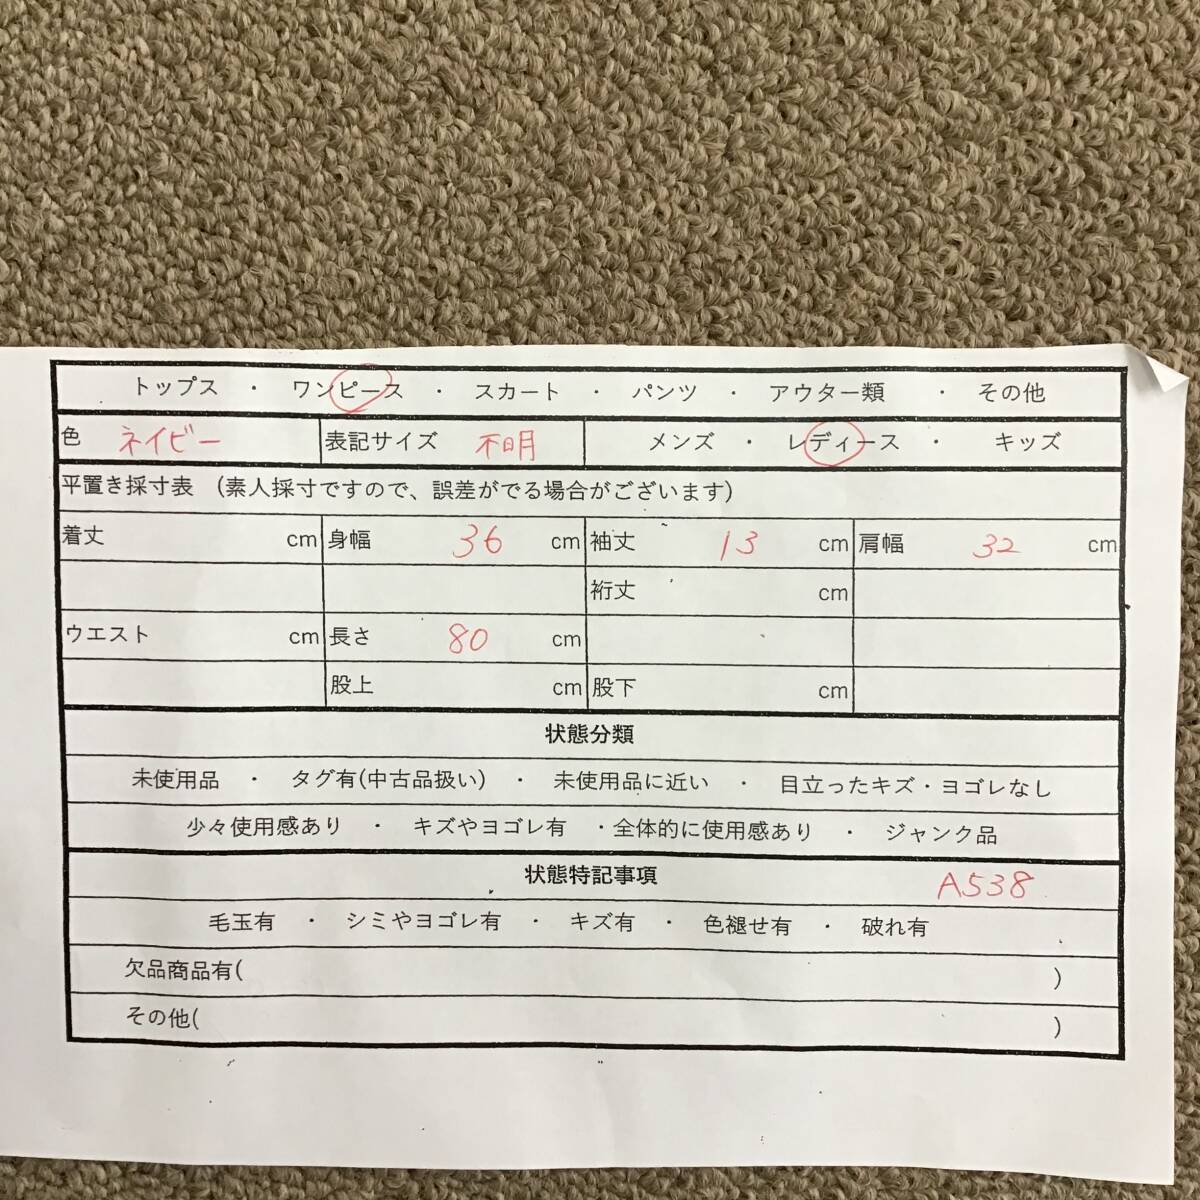 トップス ・ ワンピース ・ スカート ・ パンツ ・ アウター類 ・ その他
色 ネイビー 表記サイズ 不明 メンズ ・ レディース ・ キッズ
平置き採寸表 (素人採寸ですので、誤差がでる場合がございます)
着丈 cm 身幅 36 cm 袖丈 13 cm 肩幅 32 cm
裄丈 cm
ウエスト cm 長さ 80 cm
股上 cm 股下 cm
状態分類
未使用品 ・ タグ有(中古品扱い) ・ 未使用品に近い ・ 目立ったキズ・ヨゴレなし
少々使用感あり ・ キズやヨゴレ有 ・全体的に使用感あり ・ ジャンク品
状態特記事項 A538
毛玉有 ・ シミやヨゴレ有 ・ キズ有 ・ 色褪せ有 ・ 破れ有
欠品商品有( )
その他( )